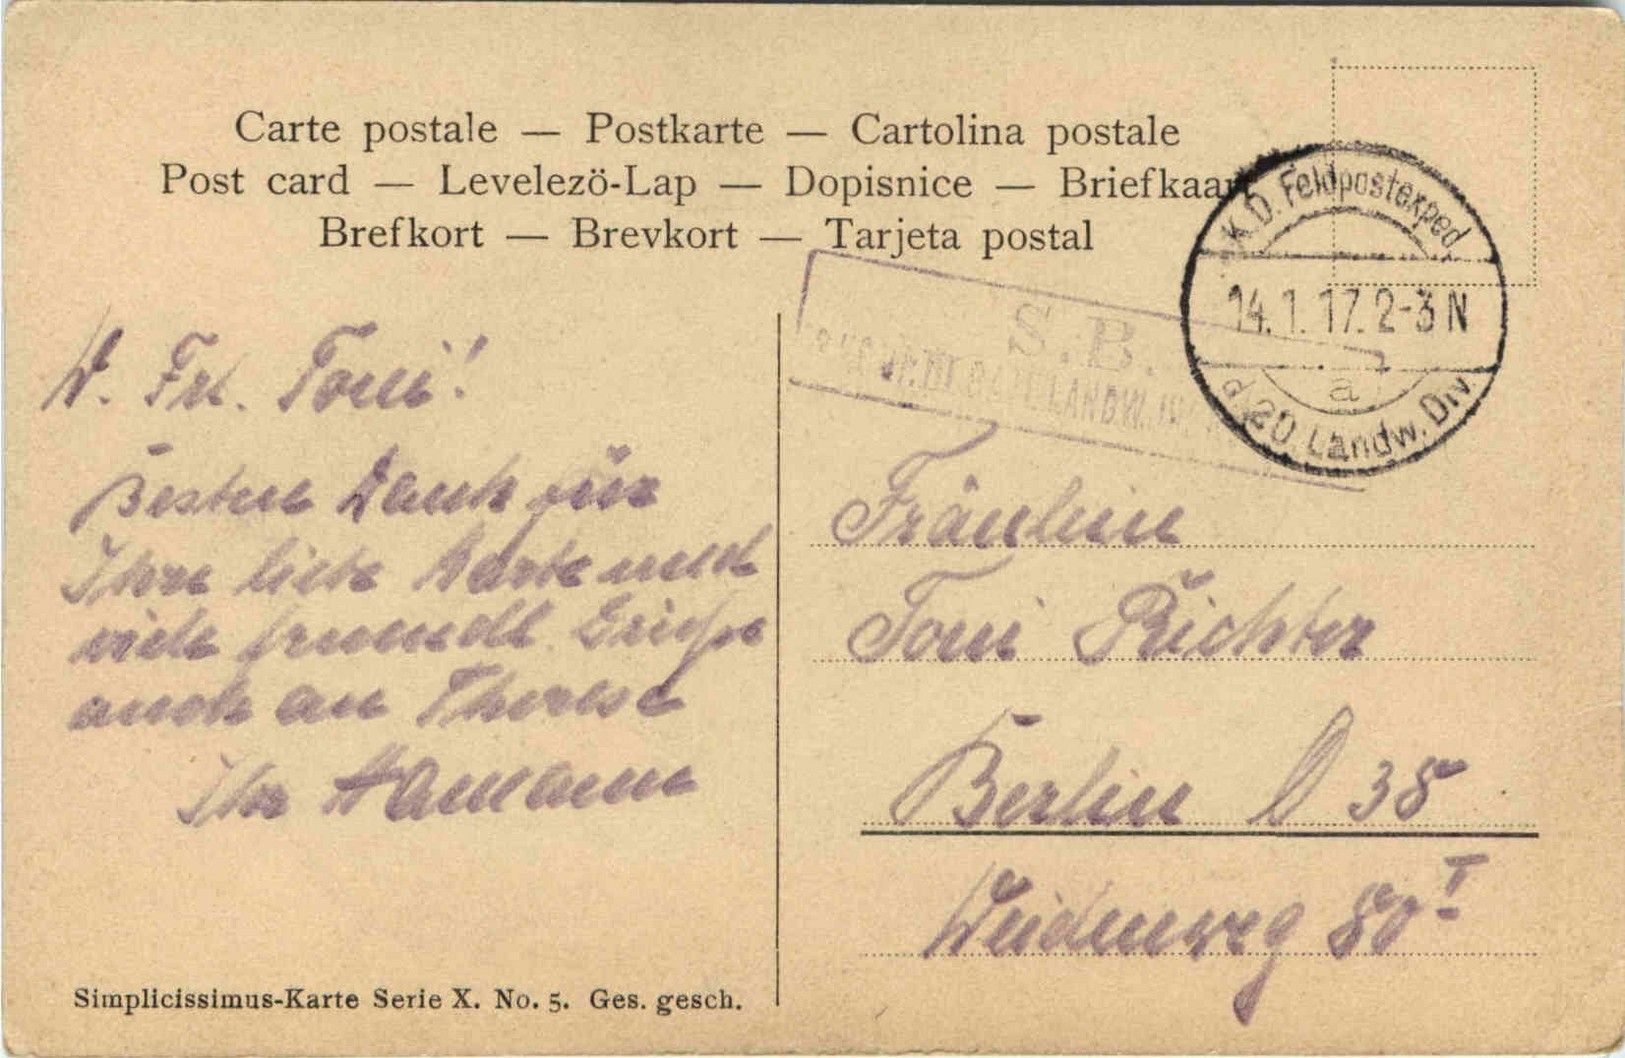 Carte postale — Postkarte — Cartolina postale
Post card — Levelezö-Lap — Dopisnice — Briefkaart
Brefkort — Brevkort — Tarjeta postal
K.D. Feldpostexped
14.1.17. 2-3 N
a
d. 20. Landw. Div.
S. B.
LANDW.
W. Frl. Toni!
Besten Dank für
Ihre liebe Karte und
viele freundl. Grüße
auch an Therese
Ihr Hamann
Fräulein
Toni Richter
Berlin O 38
Weidenweg 80 I
Simplicissimus-Karte Serie X. No. 5. Ges. gesch.